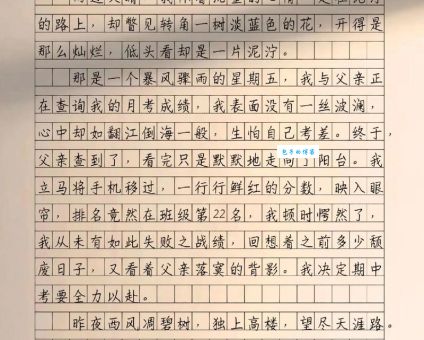 的路上，却瞥见转角一树淡蓝色的花，开得是
那么灿烂，低头看却是一片泥泞。
那是一个暴风骤雨的星期五，我与父亲正
在查询我的月考成绩，我表面没有一丝波澜，
心中却如翻江倒海一般，生怕自己考差。终于，
父亲查到了，看完只是默默地走向了阳台。我
立马将手机移过，一行行鲜红的分数，映入眼
帘，排名竟然在班级第22名，我顿时愕然了，
我从未有如此失败之战绩，回想着之前多少颓
废日子，又看着父亲落寞的背影。我决定期中
考要全力以赴。
昨夜西风凋碧树，独上高楼，望尽天涯路。